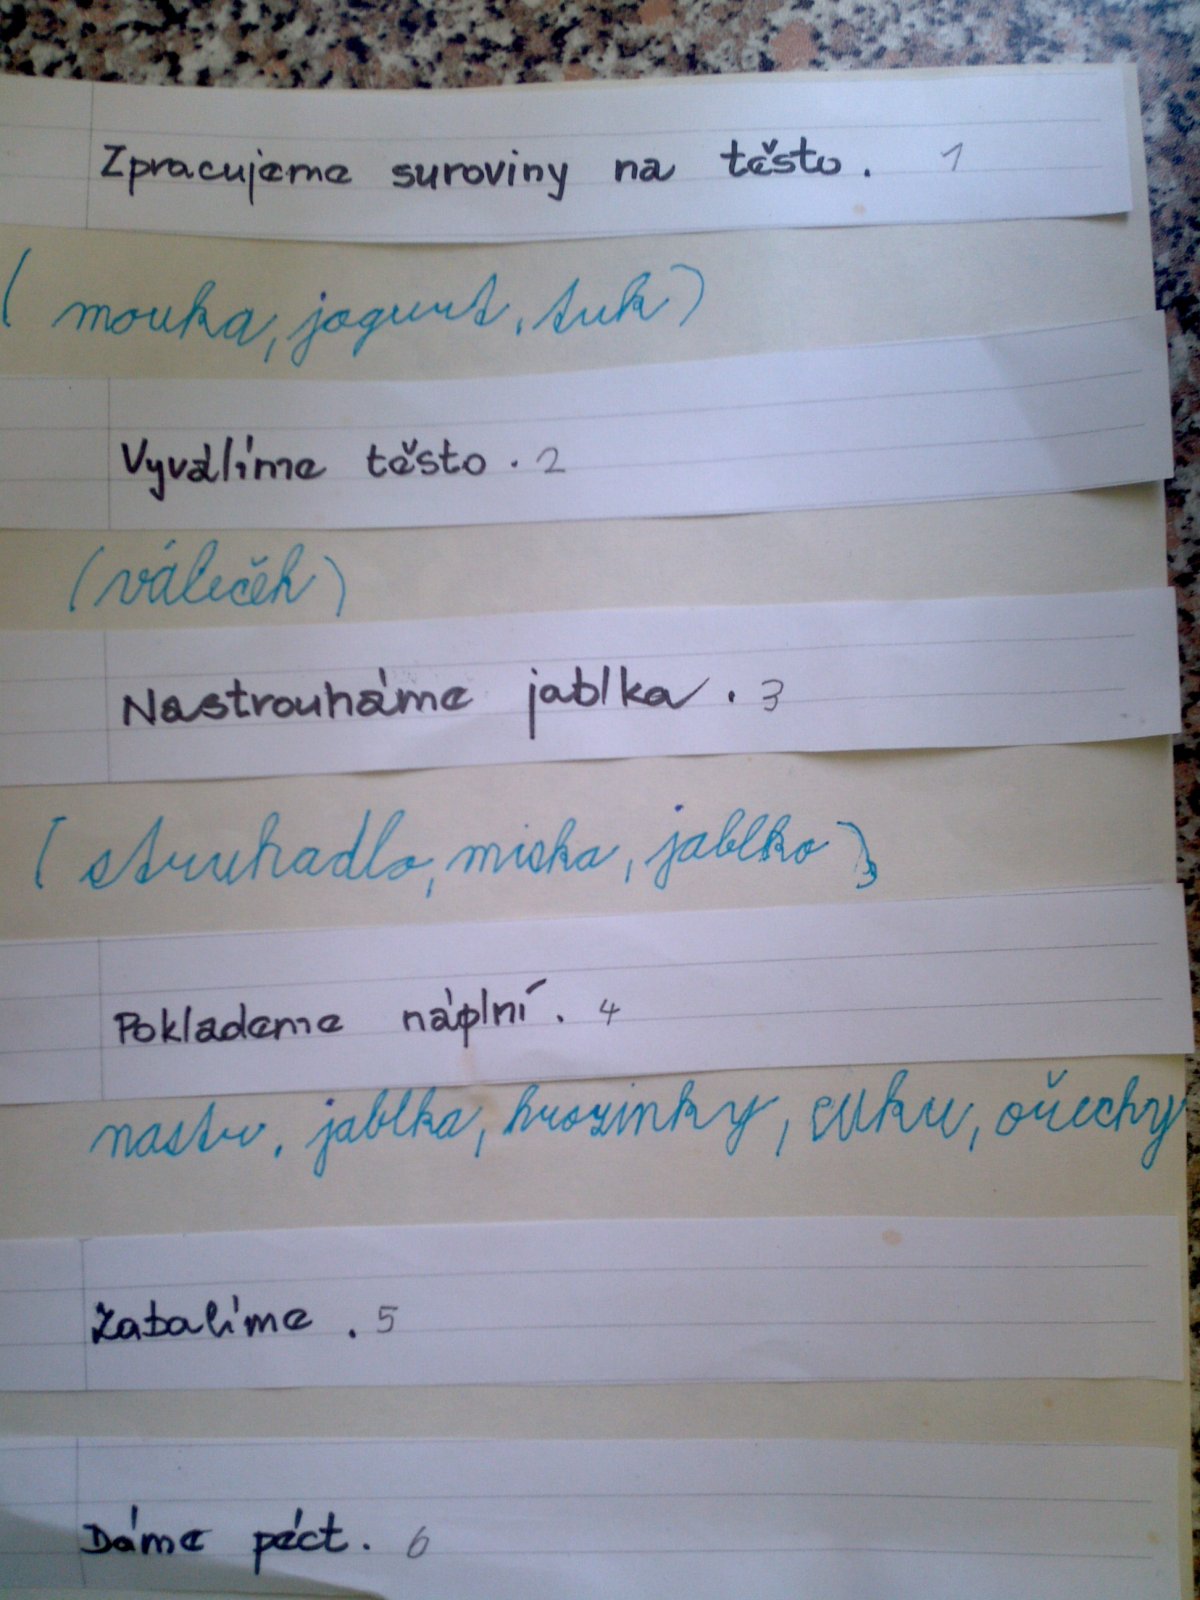 Zpracujeme suroviny na těsto. 1
( mouka, jogurt, tuk)
Vyválíme těsto. 2
(váleček)
Nastrouháme jablka. 3
( struhadlo, miska, jablko )
Poklademe náplní. 4
nastr. jablka, hrozinky, cukr, ořechy
Zabalíme. 5
Dáme péct. 6